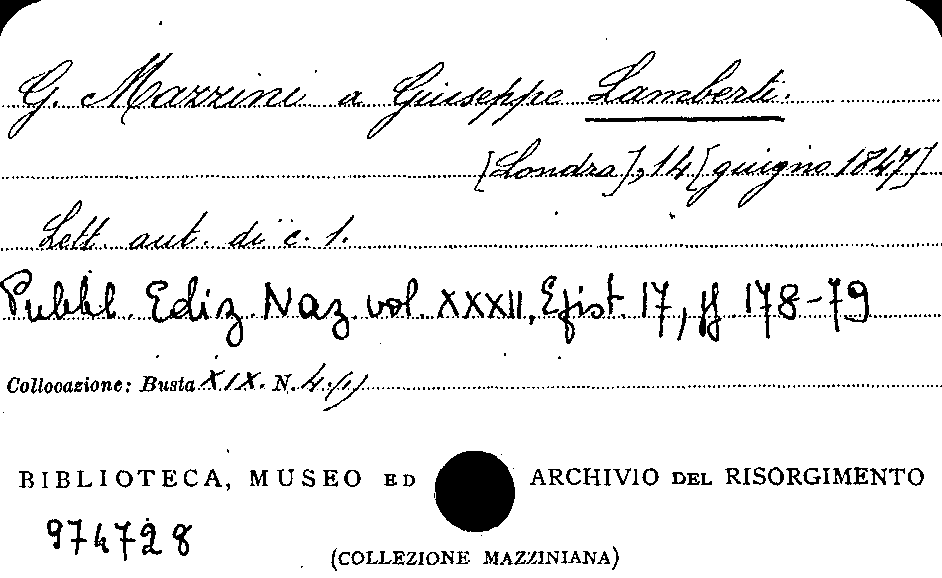 G. Mazzini a Giuseppe Lamberti.
[Londra], 14 [giugno 1847]
Lett. aut. di c. 1.
Pubbl. Ediz. Naz. vol. XXXII, Epist. 17, pp. 178-79
Collocazione: Busta XIX. N. 4.(1)
BIBLIOTECA, MUSEO ED ARCHIVIO DEL RISORGIMENTO
974728
(COLLEZIONE MAZZINIANA)